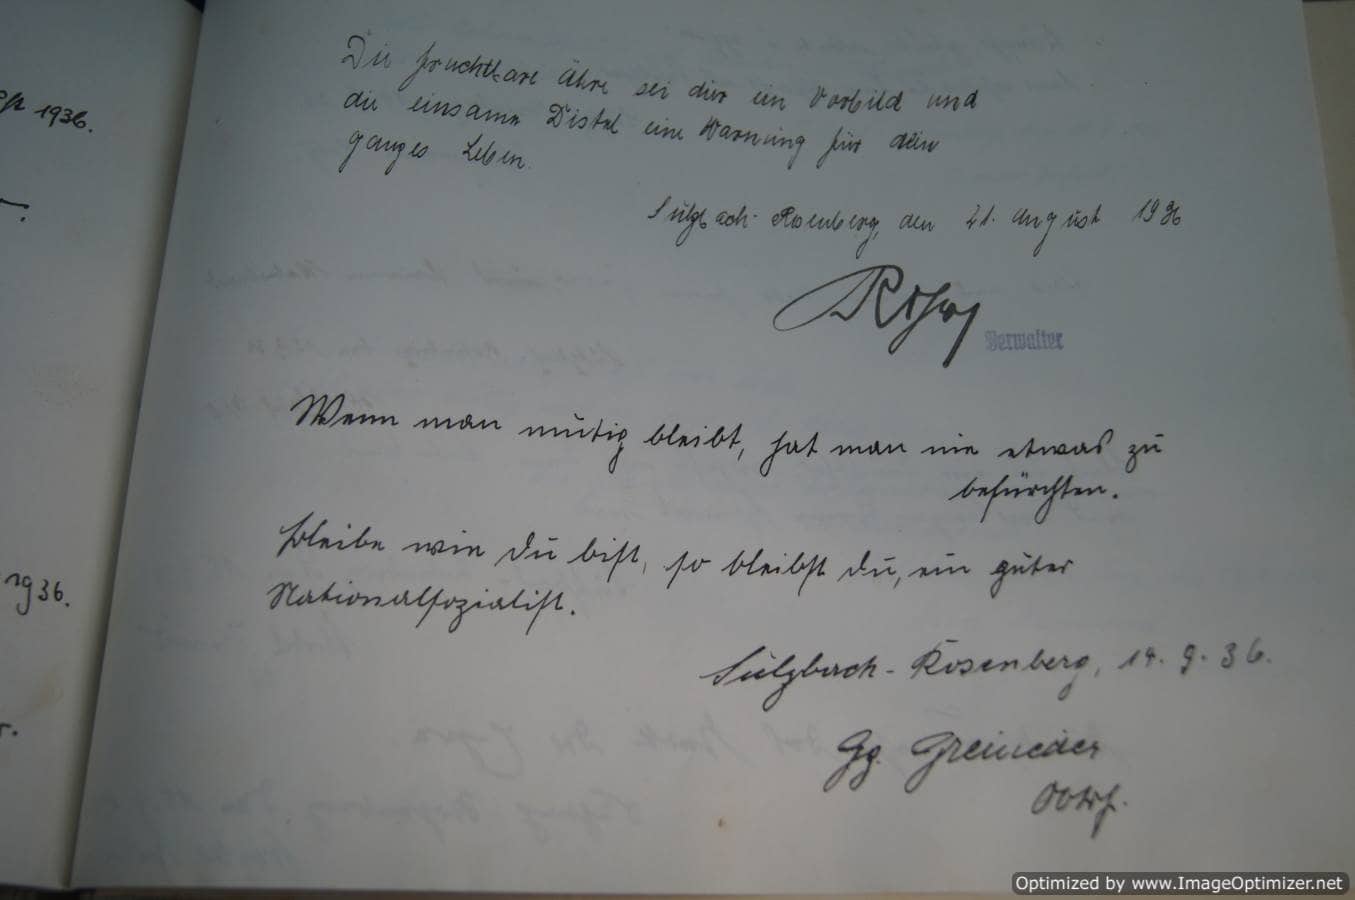 1936.
ng 36.
Die fruchtbare Ähre sei dir ein Vorbild und
die einsame Distel eine Warnung für dein
ganzes Leben.
Sulzbach-Rosenberg, den 21. August 1936
Verwalter
Wenn man mutig bleibt, hat man nie etwas zu
befürchten.
Bleibe wie du bist, so bleibst du, ein guter
Nationalsozialist.
Sulzbach-Rosenberg, 14. 9. 36.
Gg. Greineder
Optimized by www.ImageOptimizer.net